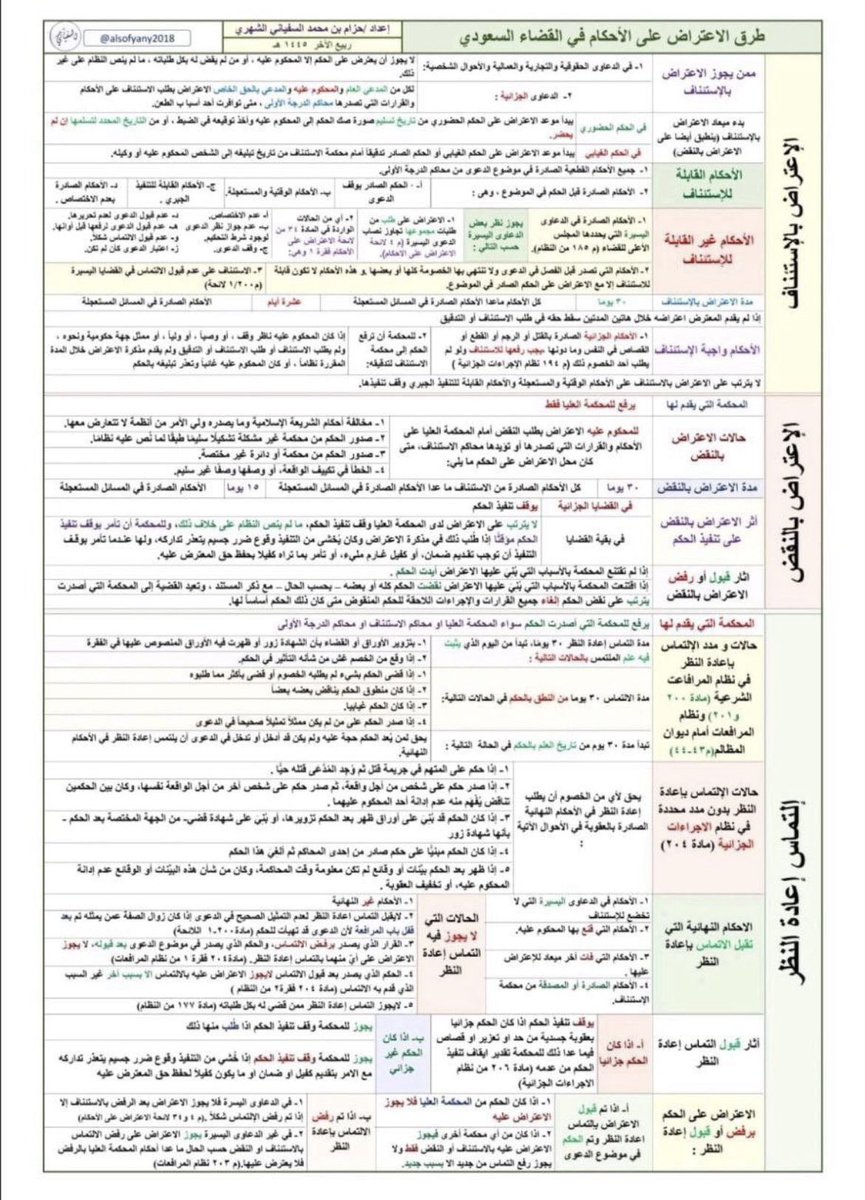 طرق الاعتراض على الأحكام في القضاء السعودي
إعداد /حزام بن محمد السفياني الشهري
ربيع الآخر ١٤٤٥ هـ
@alsofyany2018
الإعتراض بالإستئناف
ممن يجوز الاعتراض بالإستئناف
١- في الدعاوى الحقوقية والتجارية والعمالية والأحوال الشخصية:
لا يجوز أن يعترض على الحكم إلا المحكوم عليه، أو من لم يقض له بكل طلباته ، ما لم ينص النظام على غير ذلك.
٢- الدعاوى الجزائية :
لكل من المدعي العام والمحكوم عليه والمدعي بالحق الخاص الاعتراض بطلب الاستئناف على الأحكام والقرارات التي تصدرها محاكم الدرجة الأولى ، متى توافرت أحد أسباب الطعن.
بدء ميعاد الاعتراض بالإستئناف (ينطبق أيضا على الاعتراض بالنقض)
في الحكم الحضوري
يبدأ موعد الاعتراض على الحكم الحضوري من تاريخ تسليم صورة صك الحكم إلى المحكوم عليه وأخذ توقيعه في الضبط ، أو من التاريخ المحدد لتسلمها إن لم يحضر.
في الحكم الغيابي
يبدأ موعد الاعتراض على الحكم الغيابي أو الحكم الصادر تدقيقاً أمام محكمة الاستئناف من تاريخ تبليغه إلى الشخص المحكوم عليه أو وكيله.
الأحكام القابلة للإستئناف
١- جميع الأحكام القطعية الصادرة في موضوع الدعوى من محاكم الدرجة الأولى.
٢- الأحكام الصادرة قبل الحكم في الموضوع ، وهى :
أ- الحكم الصادر بوقف الدعوى
ب- الأحكام الوقتية والمستعجلة.
ج- الأحكام القابلة للتنفيذ الجبري .
د- الأحكام الصادرة بعدم الاختصاص .
الأحكام غير القابلة للإستئناف
١- الأحكام الصادرة في الدعاوى اليسيرة التي يحددها المجلس الأعلى للقضاء (م ١٨٥ من النظام).
يجوز نظر بعض الدعاوى اليسيرة حسب التالي :
١- الاعتراض على طلب من طلبات مجموعها تجاوز نصاب الدعوى اليسيرة (م ٤ لائحة الاعتراض على الاحكام).
٢- أي من الحالات الواردة في المادة ٣٤ من لائحة الاعتراض على الأحكام فقرة ١ وهى:
أ- عدم الاختصاص.
ب- عدم جواز نظر الدعوى لوجود شرط التحكيم.
ج- وقف الدعوى.
د- عدم قبول الدعوى لعدم تحريرها.
هـ- عدم قبول الدعوى لرفعها قبل أوانها.
و- عدم قبول الالتماس شكلاً.
ز- اعتبار الدعوى كأن لم تكن.
٢- الأحكام التي تصدر قبل الفصل في الدعوى ولا تنتهي بها الخصومة كلها أو بعضها. و هذه الأحكام لا تكون قابلة للإستئناف إلا مع الاعتراض على الحكم الصادر في الموضوع.
٣- الاستئناف على عدم قبول الالتماس في القضايا اليسيرة (م١/٢٠٠ لائحة)
مدة الاعتراض بالإستئناف
٣٠ يوما
كل الأحكام ماعدا الأحكام الصادرة في المسائل المستعجلة
عشرة أيام
الأحكام الصادرة في المسائل المستعجلة
إذا لم يقدم المعترض اعتراضه خلال هاتين المدتين سقط حقه في طلب الاستئناف أو التدقيق
الأحكام واجبة الإستئناف
١- الأحكام الجزائية الصادرة بالقتل أو الرجم أو القطع أو القصاص في النفس وما دونها ،يجب رفعها للاستئناف ولو لم يطلب أحد الخصوم ذلك (م ١٩٤ نظام الإجراءات الجزائية )
٢- للمحكمة أن ترفع الحكم إلى محكمة الاستئناف لتدقيقه:
إذا كان المحكوم عليه ناظر وقف ، أو وصياً ، أو ولياً ، أو ممثل جهة حكومية ونحوه ، ولم يطلب الاستئناف أو طلب الاستئناف أو التدقيق ولم يقدم مذكرة الاعتراض خلال المدة المقررة نظاماً ، أو كان المحكوم عليه غائباً وتعذر تبليغه بالحكم
لا يترتب على الاعتراض بالاستئناف على الأحكام الوقتية والمستعجلة والأحكام القابلة للتنفيذ الجبري وقف تنفيذها.
الإعتراض بالنقض
المحكمة التي يقدم لها
يرفع للمحكمة العليا فقط
حالات الاعتراض بالنقض
للمحكوم عليه الاعتراض بطلب النقض أمام المحكمة العليا على الأحكام والقرارات التي تصدرها أو تؤيدها محاكم الاستئناف، متى كان محل الاعتراض على الحكم ما يلي:
١- مخالفة أحكام الشريعة الإسلامية وما يصدره ولي الأمر من أنظمة لا تتعارض معها.
٢- صدور الحكم من محكمة غير مشكلة تشكيلًا سليمًا طبقًا لما نُص عليه نظامًا.
٣- صدور الحكم من محكمة أو دائرة غير مختصة.
٤- الخطأ في تكييف الواقعة، أو وصفها وصفًا غير سليم.
مدة الاعتراض بالنقض
٣٠ يوما
كل الأحكام الصادرة من الاستئناف ما عدا الأحكام الصادرة في المسائل المستعجلة
١٥ يوما
الأحكام الصادرة في المسائل المستعجلة
أثر الإعتراض بالنقض على تنفيذ الحكم
في القضايا الجزائية
يوقف تنفيذ الحكم
في بقية القضايا
لا يترتب على الاعتراض لدى المحكمة العليا وقف تنفيذ الحكم، ما لم ينص النظام على خلاف ذلك، وللمحكمة أن تأمر بوقف تنفيذ الحكم مؤقتًا إذا طُلب ذلك في مذكرة الاعتراض وكان يُخشى من التنفيذ وقوع ضرر جسيم يتعذر تداركه، ولها عندما تأمر بوقف التنفيذ أن توجب تقديم ضمان، أو كفيل غارم مليء، أو تأمر بما تراه كفيلًا بحفظ حق المعترض عليه.
اثار قبول أو رفض الاعتراض بالنقض
إذا لم تقتنع المحكمة بالأسباب التي بُني عليها الاعتراض أيدت الحكم .
إذا اقتنعت المحكمة بالأسباب التي بُني عليها الاعتراض نقضت الحكم كله أو بعضه – بحسب الحال – مع ذكر المستند ، وتعيد القضية إلى المحكمة التي أصدرت
يترتب على نقض الحكم إلغاء جميع القرارات والإجراءات اللاحقة للحكم المنقوض متى كان ذلك الحكم أساساً لها.
إلتماس إعادة النظر
المحكمة التي يقدم لها
يرفع للمحكمة التي أصدرت الحكم سواء المحكمة العليا او محاكم الاستئناف او محاكم الدرجة الأولى
حالات و مدد الإلتماس بإعادة النظر في نظام المرافعات الشرعية (مادة ٢٠٠ و٢٠١) ونظام المرافعات أمام ديوان المظالم(م٤٣-٤٤)
مدة التماس إعادة النظر ٣٠ يومًا، تبدأ من اليوم الذي يثبت فيه علم الملتمس بالحالات التالية :
١- بتزوير الأوراق أو القضاء بأن الشهادة زور أو ظهرت فيه الأوراق المنصوص عليها في الفقرة
٢- إذا وقع من الخصم غش من شأنه التأثير في الحكم.
مدة الالتماس ٣٠ يوما من النطق بالحكم في الحالات التالية:
١- إذا قضى الحكم بشيء لم يطلبه الخصوم أو قضى بأكثر مما طلبوه
٢- إذا كان منطوق الحكم يناقض بعضه بعضاً
٣- إذا كان الحكم غيابيا.
٤- إذا صدر الحكم على من لم يكن ممثلاً تمثيلاً صحيحاً في الدعوى
تبدأ مدة ٣٠ يوم من تاريخ العلم بالحكم في الحالة التالية :
يحق لمن يُعد الحكم حجة عليه ولم يكن قد أدخل أو تدخل في الدعوى أن يلتمس إعادة النظر في الأحكام النهائية.
حالات الإلتماس بإعادة النظر بدون مدد محددة في نظام الاجراءات الجزائية (مادة ٢٠٤)
يحق لأي من الخصوم أن يطلب إعادة النظر في الأحكام النهائية الصادرة بالعقوبة في الأحوال الآتية :
١- إذا حكم على المتهم في جريمة قتل ثم وُجد المُدَّعى قتله حيًّا .
٢- إذا صدر حكم على شخص من أجل واقعة، ثم صدر حكم على شخص آخر من أجل الواقعة نفسها، وكان بين الحكمين تناقض يُفْهم منه عدم إدانة أحد المحكوم عليهما .
٣- إذا كان الحكم قد بُني على أوراق ظهر بعد الحكم تزويرها، أو بُني على شهادة قضي- من الجهة المختصة بعد الحكم - بأنها شهادة زور
٤- إذا كان الحكم مبنيًّا على حكم صادر من إحدى المحاكم ثم ألغي هذا الحكم
٥- إذا ظهر بعد الحكم بيّنات أو وقائع لم تكن معلومة وقت المحاكمة، وكان من شأن هذه البيّنات أو الوقائع عدم إدانة المحكوم عليه، أو تخفيف العقوبة .
الاحكام النهائية التي تقبل الالتماس بإعادة النظر
١- الأحكام في الدعاوى اليسيرة التي لا تخضع للإستئناف
٢- الأحكام التي قنع بها المحكوم عليه.
٣- الأحكام التي فات آخر ميعاد للإعتراض عليها .
٤- الأحكام الصادرة أو المصدقة من محكمة الاستئناف.
الحالات التي لا يجوز فيه التماس إعادة النظر
١- الأحكام غير النهائية
٢- لايقبل التماس إعادة النظر لعدم التمثيل الصحيح في الدعوى إذا كان زوال الصفة عمن يمثله تم بعد قفل باب المرافعة لأن الدعوى قد تهيأت للحكم (مادة٢٠٠-١ اللائحة)
٣- القرار الذي يصدر برفض الالتماس، والحكم الذي يصدر في موضوع الدعوى بعد قبوله، لا يجوز الاعتراض على أيّ منهما بالتماس إعادة النظر. (مادة٢٠٤ فقرة ١ من نظام المرافعات)
٤- الحكم الذي يصدر بعد قبول الالتماس لايجوز الاعتراض عليه بالالتماس الا بسبب آخر غير السبب الذي قدم به الالتماس (مادة ٢٠٤ فقرة٢ من النظام )
٥- لايجوز التماس إعادة النظر ممن قضي له بكل طلباته (مادة ١٧٧ من النظام)
أثار قبول التماس إعادة النظر
أ- إذا كان الحكم جزائياً
يوقف تنفيذ الحكم اذا كان الحكم جزائيا بعقوبة جسدية من حد او تعزير او قصاص فيما عدا ذلك للمحكمة تقدير ايقاف تنفيذ الحكم من عدمه (مادة ٢٠٦ من نظام الاجراءات الجزائية)
ب- اذا كان الحكم غير جزائي
يجوز للمحكمة وقف تنفيذ الحكم اذا طُلب منها ذلك
يجوز للمحكمة وقف تنفيذ الحكم إذا خُشي من التنفيذ وقوع ضرر جسيم يتعذر تداركه مع الامر بتقديم كفيل او ضمان او ما يكون كفيلاً لحفظ حق المعترض عليه
الاعتراض على الحكم برفض أو قبول إعادة النظر :
أ- إذا تم قبول اعادة النظر وتم الحكم في موضوع الدعوى
١- اذا كان الحكم من المحكمة العليا فلا يجوز الاعتراض عليه
٢- اذا كان من أي محكمة أخرى فيجوز الاعتراض عليه بالاستئناف أو النقض فقط ولا يجوز رفع التماس من جديد الا بسبب جديد.
ب- اذا تم رفض الالتماس بإعادة النظر
١- في الدعاوى اليسرة فلا يجوز الاعتراض بعد الرفض بالاستئناف إلا إذا تم رفض الإلتماس شكلاً .(م ٤ و٣٤ لائحة الاعتراض على الأحكام)
٢- في غير الدعاوى اليسيرة يجوز الاعتراض على رفض الالتماس بالاستئناف او النقض حسب الحال ما عدا أحكام المحكمة العليا بالرفض فلا يعترض عليها.(م ٢٠٣ نظام المرافعات)